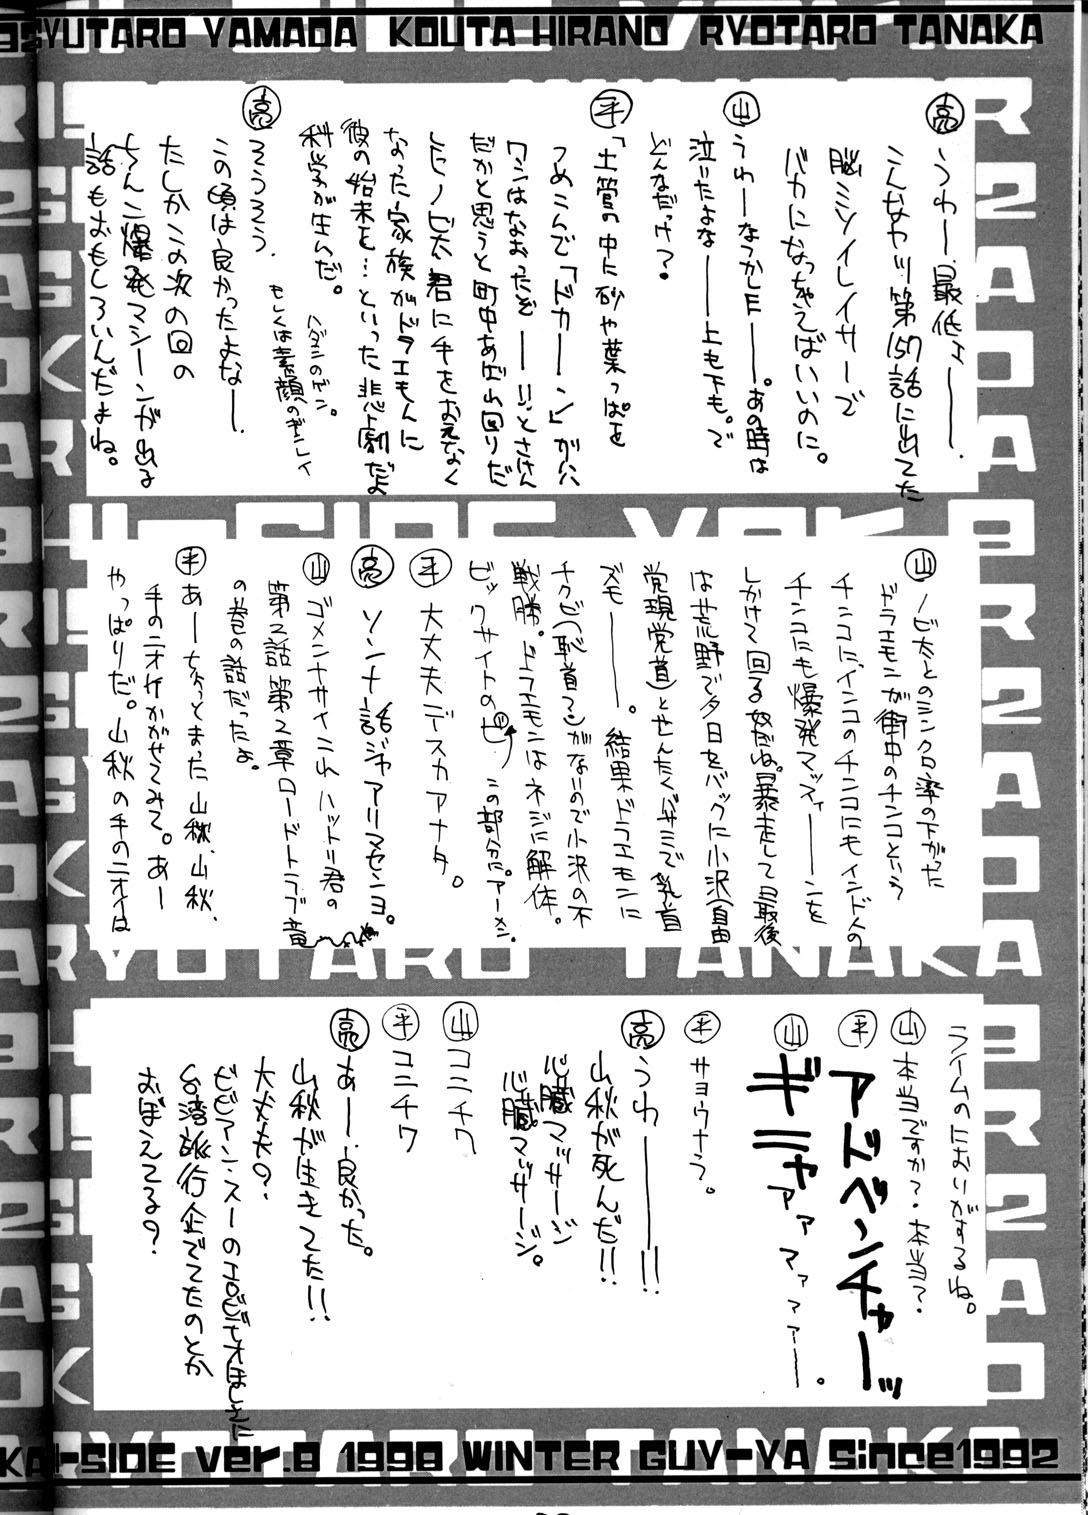 YUTARO YAMADA KOUTA HIRANO RYOTARO TANAKA
亮 うわー、最低ェーーー、
こんなヤツ第157話に出てた
脳ミソイレイサーで
バカになっちゃえばいいのに。
山 うわーなつかしEーー。あの時は
泣いたよなーー上も下も。で
どんなだっけ？
平 「土管の中に砂や葉っぱを
つめこんで「ドカーン」がハハ
ワシはなおったぞーー!!っとさけん
だかと思うと町中あばれ回りだ
したノビ太君に手をおえなく
なった家族がドラエもんに
彼の始末を…といった悲劇だよ
科学が生んだ。
ハダシのゲン。
もしくは素顔のギンレイ
亮 そうそう、
この頃は良かったよなー、
たしかこの次の回の
ちんこ爆発マシーンが出る
話もおもしろいんだよね。
山 ノビ太とのシンクロ率の下がった
ドラエモンが街中のチンコという
チンコに、インコのチンコにもインド人の
チンコにも爆発マッスィーーンを
しかけて回る奴だね。暴走して最後
は荒野で夕日をバックに小沢（自由
党現党首）とせんたくバサミで乳首
ズモーーー。結果ドラエモンに
チクビ（恥首？）がないので小沢の不
戦勝。ドラエモンはネジに解体。
ビックサイトのビ この部分に。アーメン。
平 大丈夫デスカアナタ。
亮 ソンナ話ジャアーリマセンヨ。
山 ゴメンナサイこれハットリ君の
第2話第2章ロードトラブ竜
の巻の話だったよ。
平 あーちょっとまった山秋、山秋、
手のニオイかがせてみて。あー
やっぱりだ。山秋の手のニオイは
ライムのにおいがするね。
山 本当ですか？・本当？・
平 アドベンチャーッ
山 ギニャァァァマァァァー。
平 サヨウナラ。
亮 うわーーー!!
山秋が死んだ!!
心臓マッサージ
心臓マッサージ。
山 コニチワ
平 コニチワ
亮 あー、良かった。
山秋が生きてた!!
大丈夫？
ビビアン・スーのエロビデオほしさに
台湾旅行企てたのとか
おぼえてる？
KAI-SIDE ver.8 1998 WINTER GUY-YA since1992